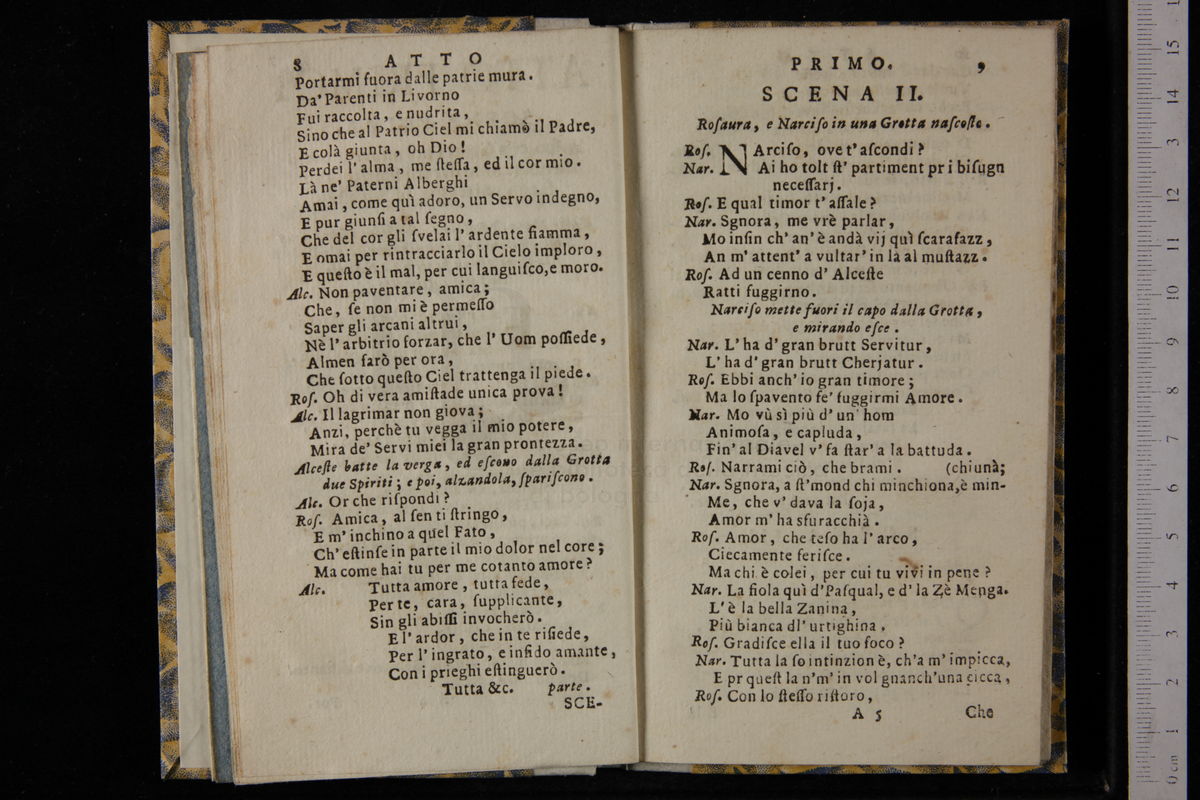 8 ATTO
Portarmi fuora dalle patrie mura.
Da' Parenti in Livorno
Fui raccolta, e nudrita,
Sino che al Patrio Ciel mi chiamò il Padre,
E colà giunta, oh Dio!
Perdei l'alma, me ſteſſa, ed il cor mio.
Là ne' Paterni Alberghi
Amai, come quì adoro, un Servo indegno,
E pur giunſi a tal ſegno,
Che del cor gli ſvelai l'ardente fiamma,
E omai per rintracciarlo il Cielo imploro,
E queſto è il mal, per cui languiſco, e moro.
Alc. Non paventare, amica;
Che, ſe non mi è permeſſo
Saper gli arcani altrui,
Nè l'arbitrio forzar, che l'Uom poſſiede,
Almen farò per ora,
Che ſotto queſto Ciel trattenga il piede.
Roſ. Oh di vera amiſtade unica prova!
Alc. Il lagrimar non giova;
Anzi, perchè tu vegga il mio potere,
Mira de' Servi miei la gran prontezza.
Alceſte batte la verga, ed eſcono dalla Grotta
due Spiriti; e poi, alzandola, ſpariſcono.
Alc. Or che riſpondi?
Roſ. Amica, al ſen ti ſtringo,
E m'inchino a quel Fato,
Ch'eſtinſe in parte il mio dolor nel core;
Ma come hai tu per me cotanto amore?
Alc. Tutta amore, tutta fede,
Per te, cara, ſupplicante,
Sin gli abiſſi invocherò.
E l'ardor, che in te riſiede,
Per l'ingrato, e infido amante,
Con i prieghi eſtinguerò.
Tutta &c. parte.
SCE-
PRIMO. 9
SCENA II.
Roſaura, e Narciſo in una Grotta naſcoſte.
Roſ. NArciſo, ove t'aſcondi?
Nar. Ai ho tolt ſt' partiment pr i biſugn
neceſſarj.
Roſ. E qual timor t'aſſale?
Nar. Sgnora, me vrè parlar,
Mo inſin ch'an'è andà vij quì ſcarafazz,
An m'attent'a vultar'in là al muſtazz.
Roſ. Ad un cenno d'Alceſte
Ratti fuggirno.
Narciſo mette fuori il capo dalla Grotta,
e mirando eſce.
Nar. L'ha d'gran brutt Servitur,
L'ha d'gran brutt Cherjatur.
Roſ. Ebbi anch'io gran timore;
Ma lo ſpavento fe' fuggirmi Amore.
Nar. Mo vù sì più d'un' hom
Animoſa, e capluda,
Fin'al Diavel v'fa ſtar'a la battuda.
Roſ. Narrami ciò, che brami. (chiunà;
Nar. Sgnora, a ſt'mond chi minchiona, è min-
Me, che v'dava la ſoja,
Amor m'ha sfuracchià.
Roſ. Amor, che teſo ha l'arco,
Ciecamente feriſce.
Ma chi è colei, per cui tu vivi in pene?
Nar. La fiola quì d'Paſqual, e d'la Zè Menga.
L'è la bella Zanina,
Più bianca dl'urtighina.
Roſ. Gradiſce ella il tuo foco?
Nar. Tutta la ſo intinzion è, ch'a m'impicca,
E pr queſt la n'm'in vol gnanch'una cicca,
Roſ. Con lo ſteſſo riſtoro,
A 5 Che